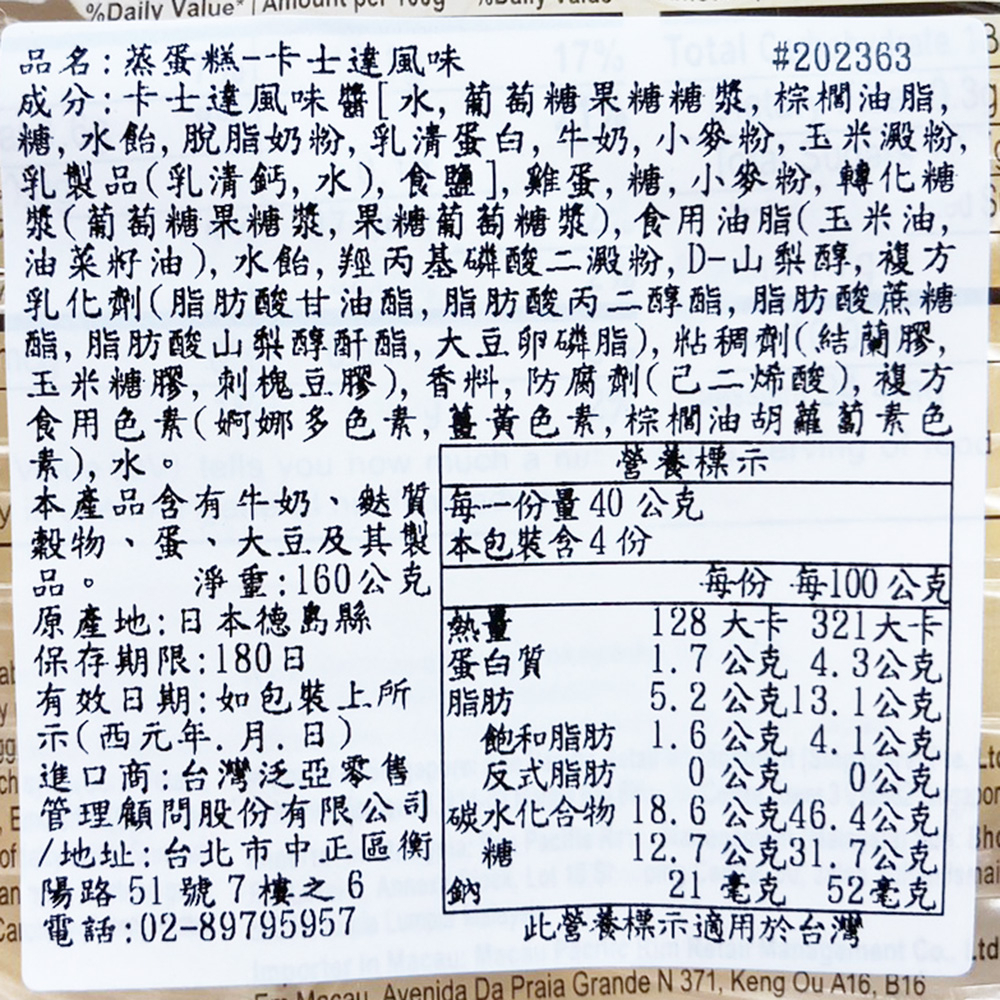 %Daily Value* | Amount per 100g %Daily Value*
品名:蒸蛋糕-卡士達風味 #202363
成分:卡士達風味醬[水,葡萄糖果糖糖漿,棕櫚油脂,
糖,水飴,脫脂奶粉,乳清蛋白,牛奶,小麥粉,玉米澱粉,
乳製品(乳清鈣,水),食鹽],雞蛋,糖,小麥粉,轉化糖
漿(葡萄糖果糖漿,果糖葡萄糖漿),食用油脂(玉米油,
油菜籽油),水飴,羥丙基磷酸二澱粉,D-山梨醇,複方
乳化劑(脂肪酸甘油酯,脂肪酸丙二醇酯,脂肪酸蔗糖
酯,脂肪酸山梨醇酐酯,大豆卵磷脂),粘稠劑(結蘭膠,
玉米糖膠,刺槐豆膠),香料,防腐劑(己二烯酸),複方
食用色素(婀娜多色素,薑黃色素,棕櫚油胡蘿蔔素色
素),水。
本產品含有牛奶、麩質
穀物、蛋、大豆及其製
品。 淨重:160公克
原產地:日本德島縣
保存期限:180日
有效日期:如包裝上所
示(西元年.月.日)
進口商:台灣泛亞零售
管理顧問股份有限公司
/地址:台北市中正區衡
陽路51號7樓之6
電話:02-89795957
營養標示
每一份量40公克
本包裝含4份
每份 每100公克
熱量 128大卡 321大卡
蛋白質 1.7公克 4.3公克
脂肪 5.2公克 13.1公克
飽和脂肪 1.6公克 4.1公克
反式脂肪 0公克 0公克
碳水化合物 18.6公克 46.4公克
糖 12.7公克 31.7公克
鈉 21毫克 52毫克
此營養標示適用於台灣
Importer in Macau: Macau Pacific Rim Retail Management Co., Ltd
Em Macau, Avenida Da Praia Grande N 371, Keng Ou A16, B16